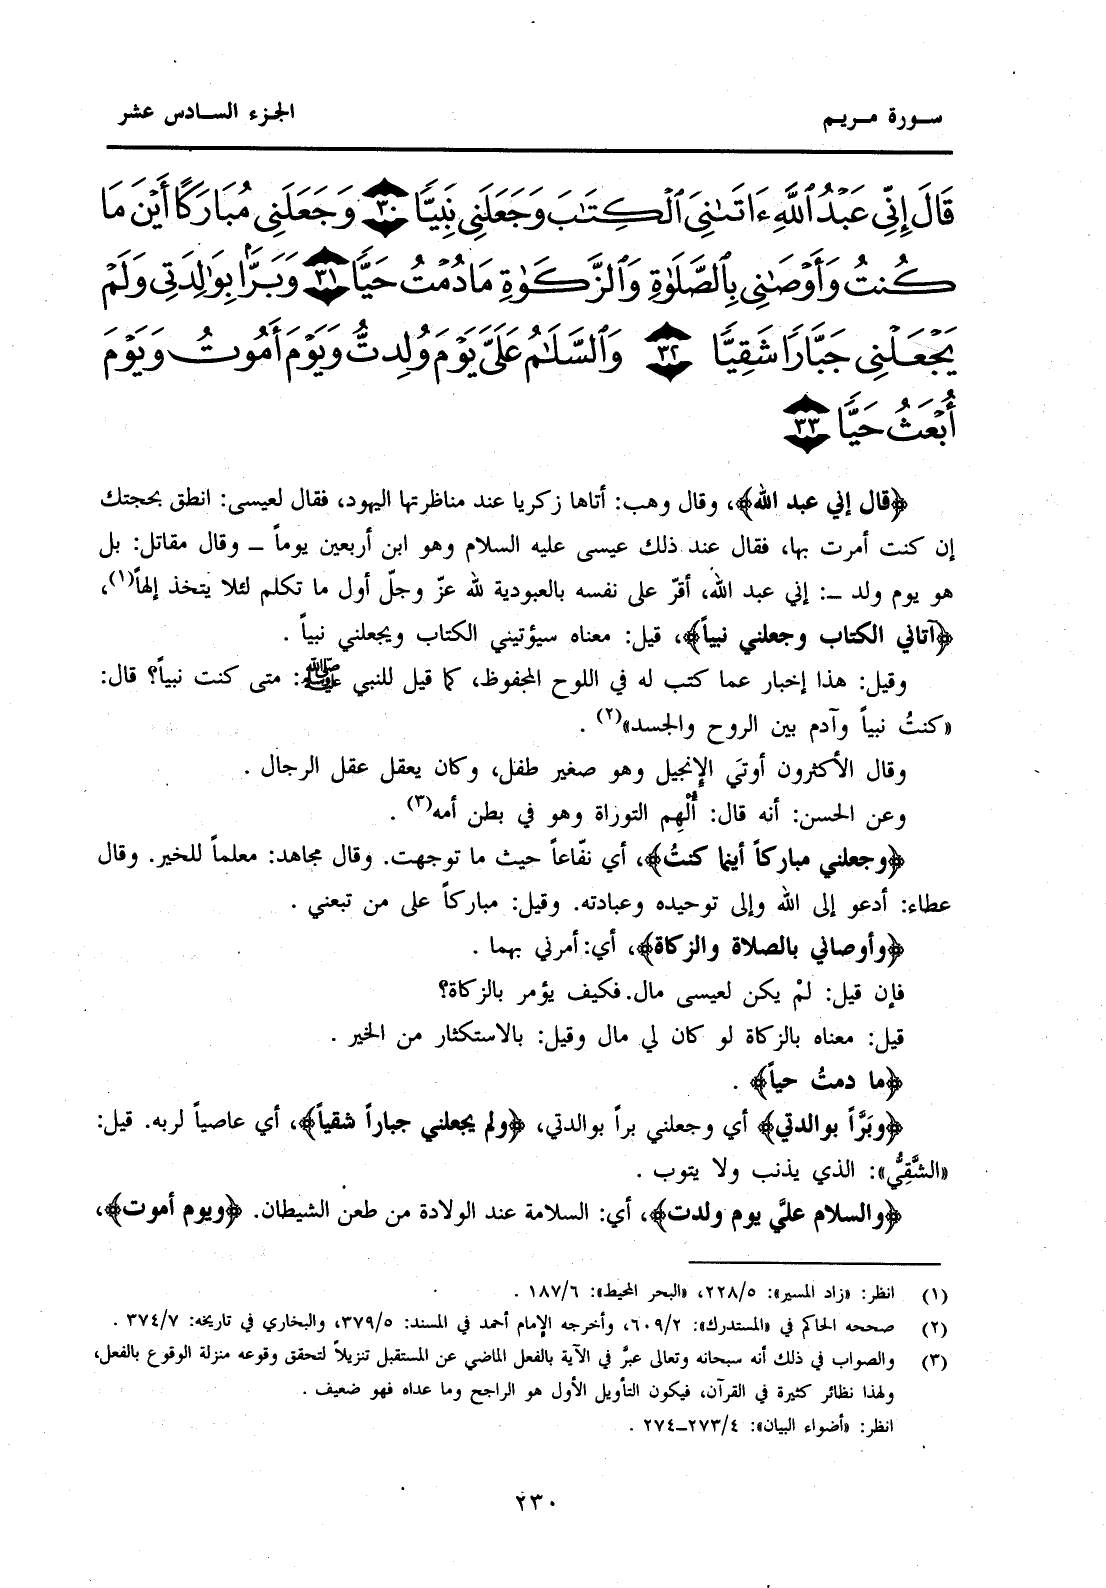 سورة مريم
الجزء السادس عشر
قَالَ إِنِّي عَبْدُ ٱللَّهِ ءَاتَىٰنِىَ ٱلْكِتَٰبَ وَجَعَلَنِى نَبِيًّا ﴿٣٠﴾ وَجَعَلَنِى مُبَارَكًا أَيْنَ مَا
كُنتُ وَأَوْصَٰنِى بِٱلصَّلَوٰةِ وَٱلزَّكَوٰةِ مَا دُمْتُ حَيًّا ﴿٣١﴾ وَبَرًّۢا بِوَٰلِدَتِى وَلَمْ
يَجْعَلْنِى جَبَّارًا شَقِيًّا ﴿٣٢﴾ وَٱلسَّلَٰمُ عَلَىَّ يَوْمَ وُلِدتُّ وَيَوْمَ أَمُوتُ وَيَوْمَ
أُبْعَثُ حَيًّا ﴿٣٣﴾
﴿قال إني عبد الله﴾، وقال وهب: أتاها زكريا عند مناظرتها اليهود، فقال لعيسى: انطق بحجتك
إن كنت أمرت بها، فقال عند ذلك عيسى عليه السلام وهو ابن أربعين يوماً ـ وقال مقاتل: بل
هو يوم ولد ـ: إني عبد الله، أقرّ على نفسه بالعبودية لله عزّ وجلّ أول ما تكلم لئلا يتخذ إلهاً(١)،
﴿آتاني الكتاب وجعلني نبياً﴾، قيل: معناه سيؤتيني الكتاب ويجعلني نبياً .
وقيل: هذا إخبار عما كتب له في اللوح المحفوظ، كما قيل للنبي ﷺ: متى كنت نبياً؟ قال:
«كنتُ نبياً وآدم بين الروح والجسد»(٢) .
وقال الأكثرون أوتيَ الإنجيل وهو صغير طفل، وكان يعقل عقل الرجال .
وعن الحسن: أنه قال: أُلْهِم التوراة وهو في بطن أمه(٣) .
﴿وجعلني مباركاً أينما كنتُ﴾، أي نفّاعاً حيث ما توجهت. وقال مجاهد: معلماً للخير. وقال
عطاء: أدعو إلى الله وإلى توحيده وعبادته. وقيل: مباركاً على من تبعني .
﴿وأوصاني بالصلاة والزكاة﴾، أي: أمرني بهما .
فإن قيل: لمْ يكن لعيسى مال. فكيف يؤمر بالزكاة؟
قيل: معناه بالزكاة لو كان لي مال وقيل: بالاستكثار من الخير .
﴿ما دمتُ حياً﴾ .
﴿وبَرَّاً بوالدتي﴾ أي وجعلني براً بوالدتي، ﴿ولم يجعلني جباراً شقياً﴾، أي عاصياً لربه. قيل:
«الشَّقِيُّ»: الذي يذنب ولا يتوب .
﴿والسلام عليَّ يوم ولدت﴾، أي: السلامة عند الولادة من طعن الشيطان. ﴿ويوم أموت﴾،
(١) انظر: «زاد المسير»: ٢٢٨/٥، «البحر المحيط»: ١٨٧/٦ .
(٢) صححه الحاكم في «المستدرك»: ٦٠٩/٢، وأخرجه الإمام أحمد في المسند: ٣٧٩/٥، والبخاري في تاريخه: ٣٧٤/٧ .
(٣) والصواب في ذلك أنه سبحانه وتعالى عبَّر في الآية بالفعل الماضي عن المستقبل تنزيلاً لتحقق وقوعه منزلة الوقوع بالفعل،
ولهذا نظائر كثيرة في القرآن، فيكون التأويل الأول هو الراجح وما عداه فهو ضعيف .
انظر: «أضواء البيان»: ٢٧٣/٤ـ٢٧٤ .
٢٣٠